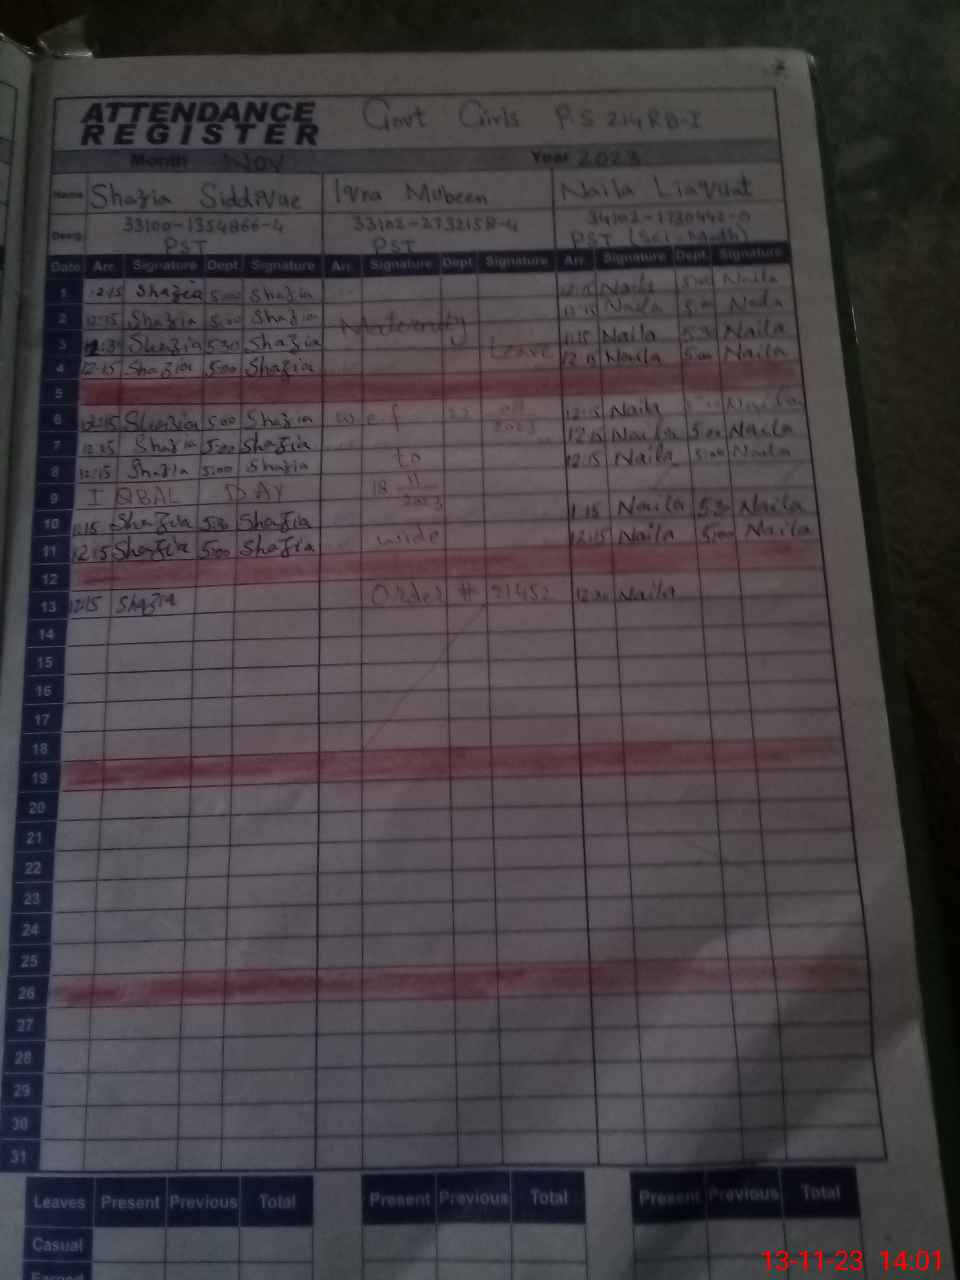 ATTENDANCE
REGISTER
Govt Girls P/S 214 RB-I
Month Nov Year 2023
Name Shazia Siddique Iqra Mubeen Naila Liaquat
33100-1354866-4 33102-2732158-4 34102-1730442-0
Desig PST PST PST (Sci-Math)
Date Arr. Signature Dept. Signature Arr. Signature Dept. Signature Arr. Signature Dept. Signature
1 12:15 Shazia 5:00 Shazia Naila 5:00 Naila
2 12:15 Shazia 5:00 Shazia Maternity 12:15 Naila 5:00 Naila
3 Shazia 5:30 Shazia Leave 1:15 Naila 5:30 Naila
4 12:15 Shazia 5:00 Shazia 12:15 Naila 5:00 Naila
5
6 12:15 Shazia 5:00 Shazia w e f 22 2023 12:15 Naila Naila
7 12:15 Shazia 5:00 Shazia 12:15 Naila 5:00 Naila
8 12:15 Shazia 5:00 Shazia to 12:15 Naila 5:00 Naila
9 IQBAL DAY 18 11 2023
10 1:15 Shazia 5:30 Shazia 1:15 Naila 5:30 Naila
11 12:15 Shazia 5:00 Shazia wide 12:15 Naila 5:00 Naila
12
13 12:15 Shazia Order # 21452 Naila
14
15
16
17
18
19
20
21
22
23
24
25
26
27
28
29
30
31
Leaves Present Previous Total Present Previous Total Present Previous Total
Casual
Earned
13-11-23 14:01